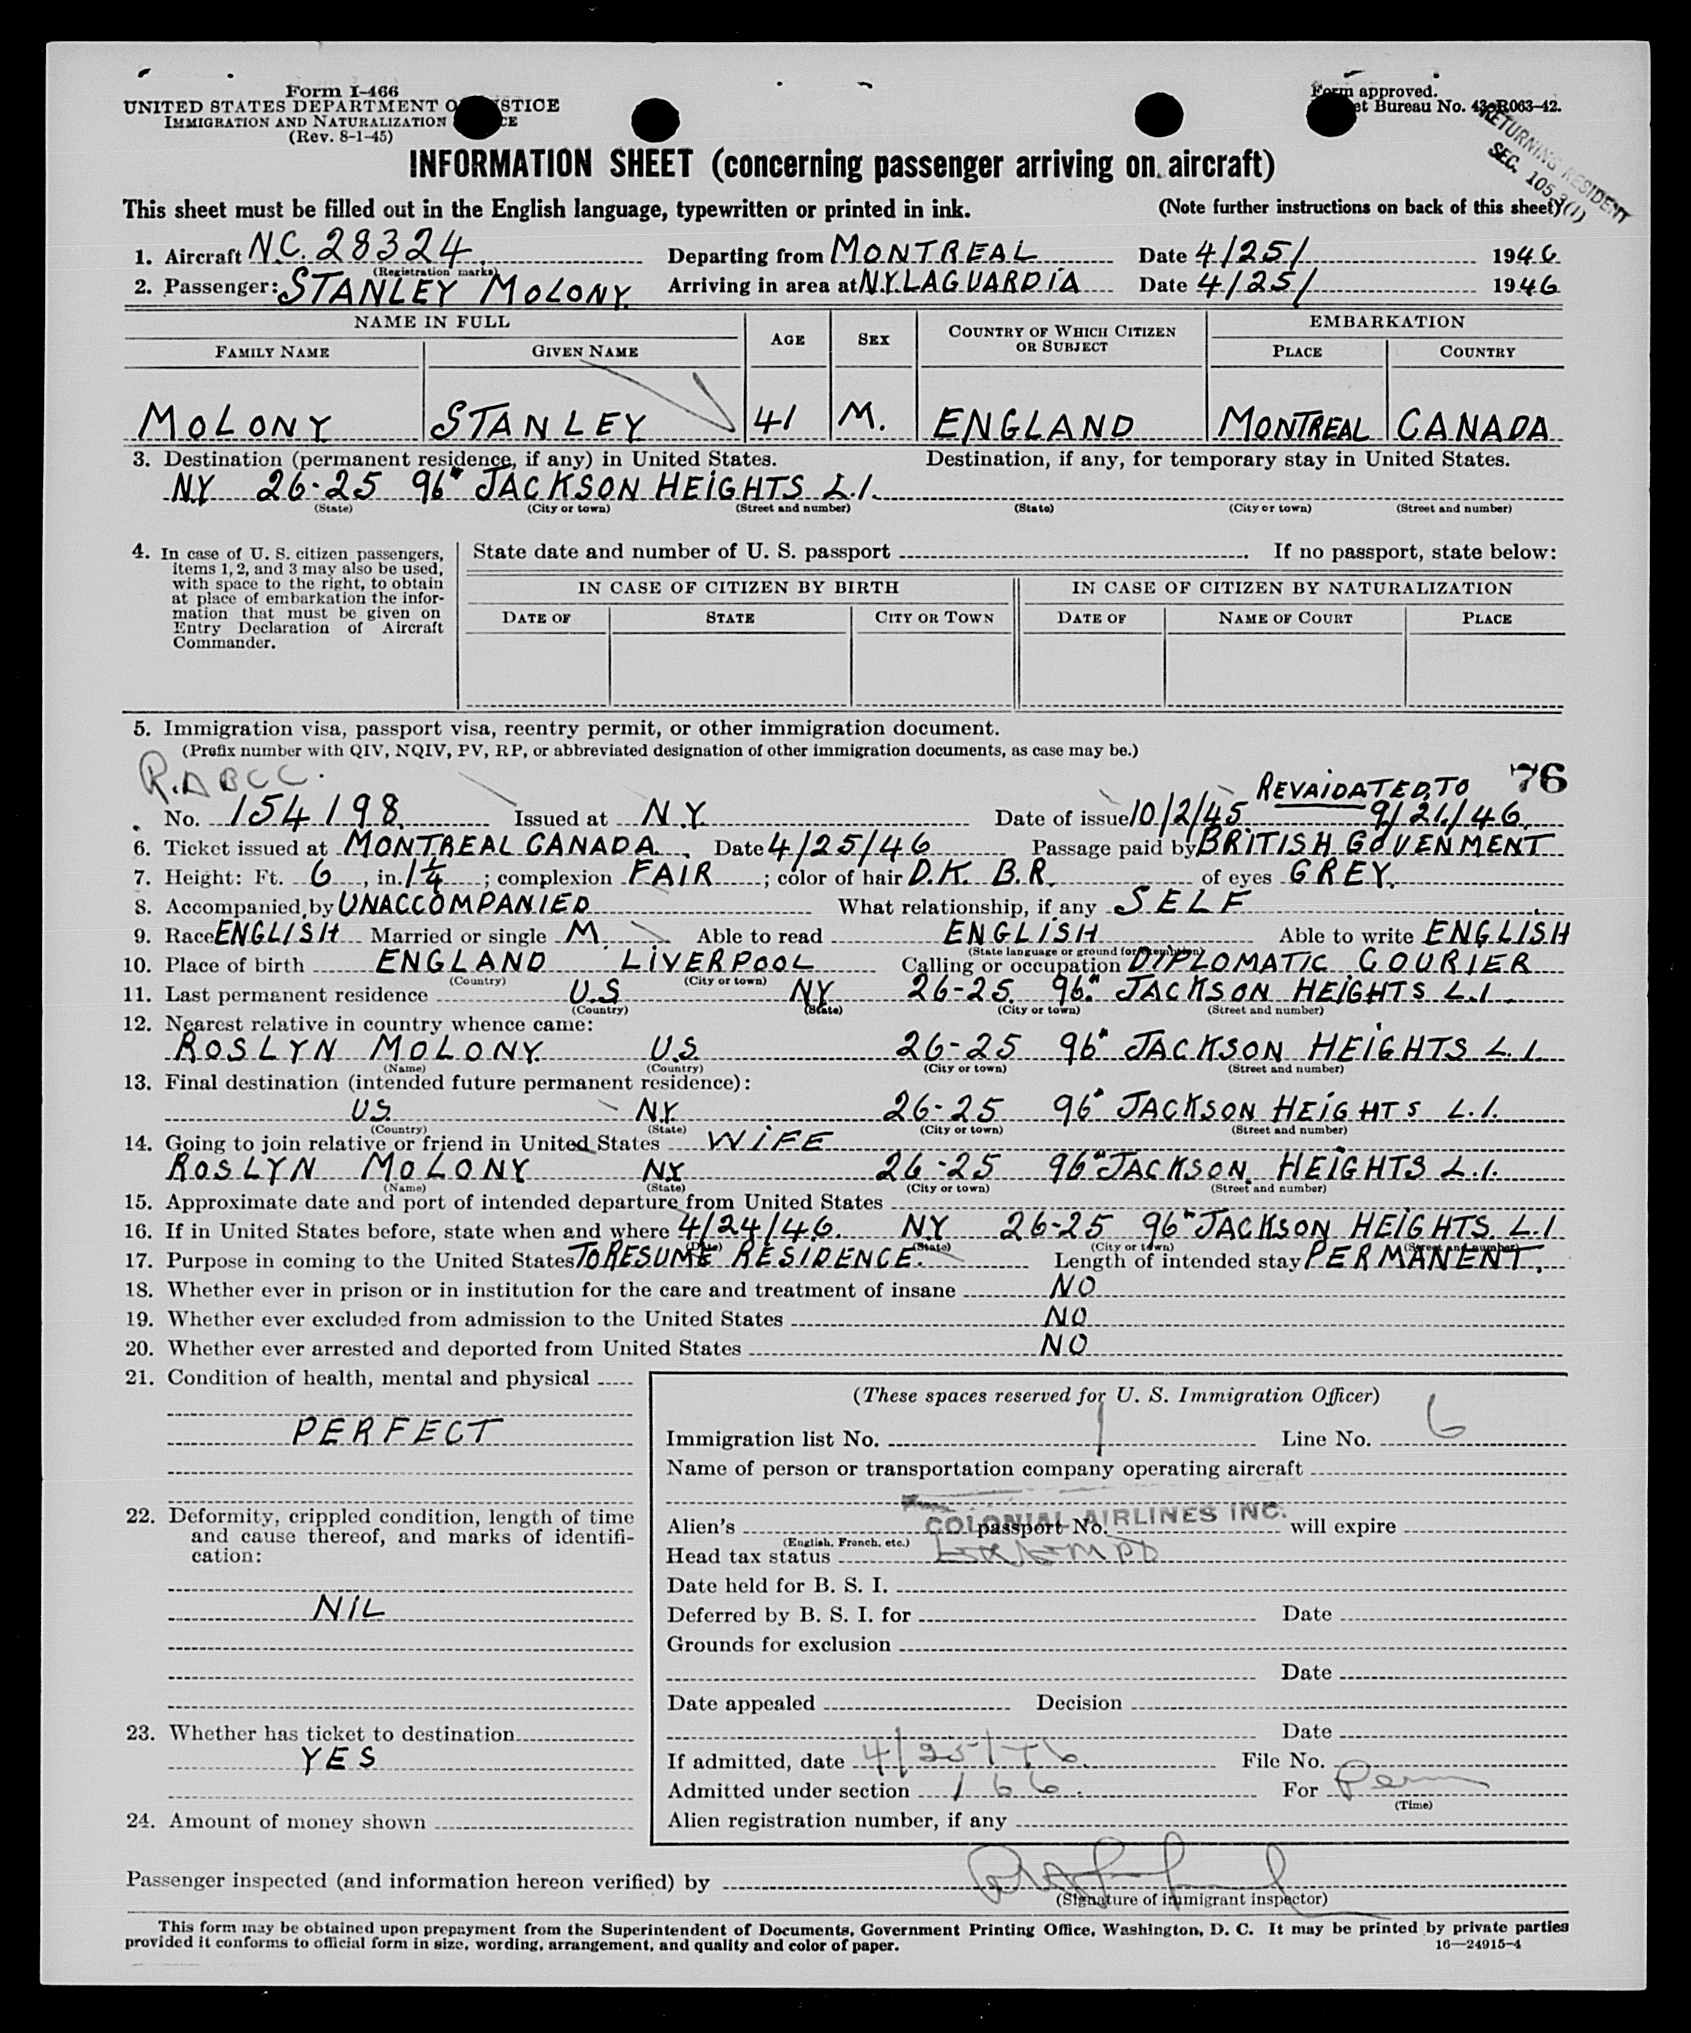 Form I-466
UNITED STATES DEPARTMENT O STICE
IMMIGRATION AND NATURALIZATION CE
(Rev. 8-1-45)
Form approved.
et Bureau No. 43-R063-42.
RETURNING RESIDENT
SEC. 105.3(1)
INFORMATION SHEET (concerning passenger arriving on aircraft)
This sheet must be filled out in the English language, typewritten or printed in ink. (Note further instructions on back of this sheet)
1. Aircraft N.C. 28324 Departing from MONTREAL Date 4/25/ 1946
(Registration marks)
2. Passenger: STANLEY MOLONY Arriving in area at N.Y. LAGUARDIA Date 4/25/ 1946
NAME IN FULL AGE SEX COUNTRY OF WHICH CITIZEN OR SUBJECT EMBARKATION
FAMILY NAME GIVEN NAME PLACE COUNTRY
MOLONY STANLEY 41 M. ENGLAND MONTREAL CANADA
3. Destination (permanent residence, if any) in United States. Destination, if any, for temporary stay in United States.
NY 26-25 96" JACKSON HEIGHTS L.I.
(State) (City or town) (Street and number) (State) (City or town) (Street and number)
4. In case of U. S. citizen passengers,
items 1, 2, and 3 may also be used,
with space to the right, to obtain
at place of embarkation the infor-
mation that must be given on
Entry Declaration of Aircraft
Commander.
State date and number of U. S. passport If no passport, state below:
IN CASE OF CITIZEN BY BIRTH IN CASE OF CITIZEN BY NATURALIZATION
DATE OF STATE CITY OR TOWN DATE OF NAME OF COURT PLACE
5. Immigration visa, passport visa, reentry permit, or other immigration document.
(Prefix number with QIV, NQIV, PV, RP, or abbreviated designation of other immigration documents, as case may be.)
R.A B C C. REVAIDATED TO 76
No. 154198 Issued at N.Y. Date of issue 10/2/45 9/21/46.
6. Ticket issued at MONTREAL CANADA Date 4/25/46 Passage paid by BRITISH GOVENMENT
7. Height: Ft. 6, in. 1¼; complexion FAIR; color of hair D.K. B.R. of eyes GREY.
8. Accompanied by UNACCOMPANIED What relationship, if any SELF
9. Race ENGLISH Married or single M. Able to read ENGLISH Able to write ENGLISH
(State language or ground for exemption)
10. Place of birth ENGLAND LIVERPOOL Calling or occupation DIPLOMATIC COURIER
(Country) (City or town)
11. Last permanent residence U.S NY 26-25 96" JACKSON HEIGHTS L.I.
(Country) (State) (City or town) (Street and number)
12. Nearest relative in country whence came:
ROSLYN MOLONY U.S 26-25 96" JACKSON HEIGHTS L.I.
(Name) (Country) (City or town) (Street and number)
13. Final destination (intended future permanent residence):
U.S. N.Y. 26-25 96" JACKSON HEIGHTS L.I.
(Country) (State) (City or town) (Street and number)
14. Going to join relative or friend in United States WIFE
ROSLYN MOLONY NY 26-25 96" JACKSON HEIGHTS L.I.
(Name) (State) (City or town) (Street and number)
15. Approximate date and port of intended departure from United States
16. If in United States before, state when and where 4/24/46. NY 26-25 96" JACKSON HEIGHTS. L.I
(State) (City or town) (Street and number)
17. Purpose in coming to the United States TO RESUME RESIDENCE. Length of intended stay PERMANENT.
18. Whether ever in prison or in institution for the care and treatment of insane NO
19. Whether ever excluded from admission to the United States NO
20. Whether ever arrested and deported from United States NO
21. Condition of health, mental and physical
PERFECT
22. Deformity, crippled condition, length of time
and cause thereof, and marks of identifi-
cation:
NIL
23. Whether has ticket to destination
YES
24. Amount of money shown
(These spaces reserved for U. S. Immigration Officer)
Immigration list No. 1 Line No. 6
Name of person or transportation company operating aircraft
COLONIAL AIRLINES INC.
Alien's passport No. will expire
(English, French, etc.)
Head tax status
Date held for B. S. I.
Deferred by B. S. I. for Date
Grounds for exclusion
Date
Date appealed Decision
Date
If admitted, date 4/25/46. File No.
Admitted under section 166. For Perm
(Time)
Alien registration number, if any
Passenger inspected (and information hereon verified) by
(Signature of immigrant inspector)
This form may be obtained upon prepayment from the Superintendent of Documents, Government Printing Office, Washington, D. C. It may be printed by private parties
provided it conforms to official form in size, wording, arrangement, and quality and color of paper.
16—24915-4